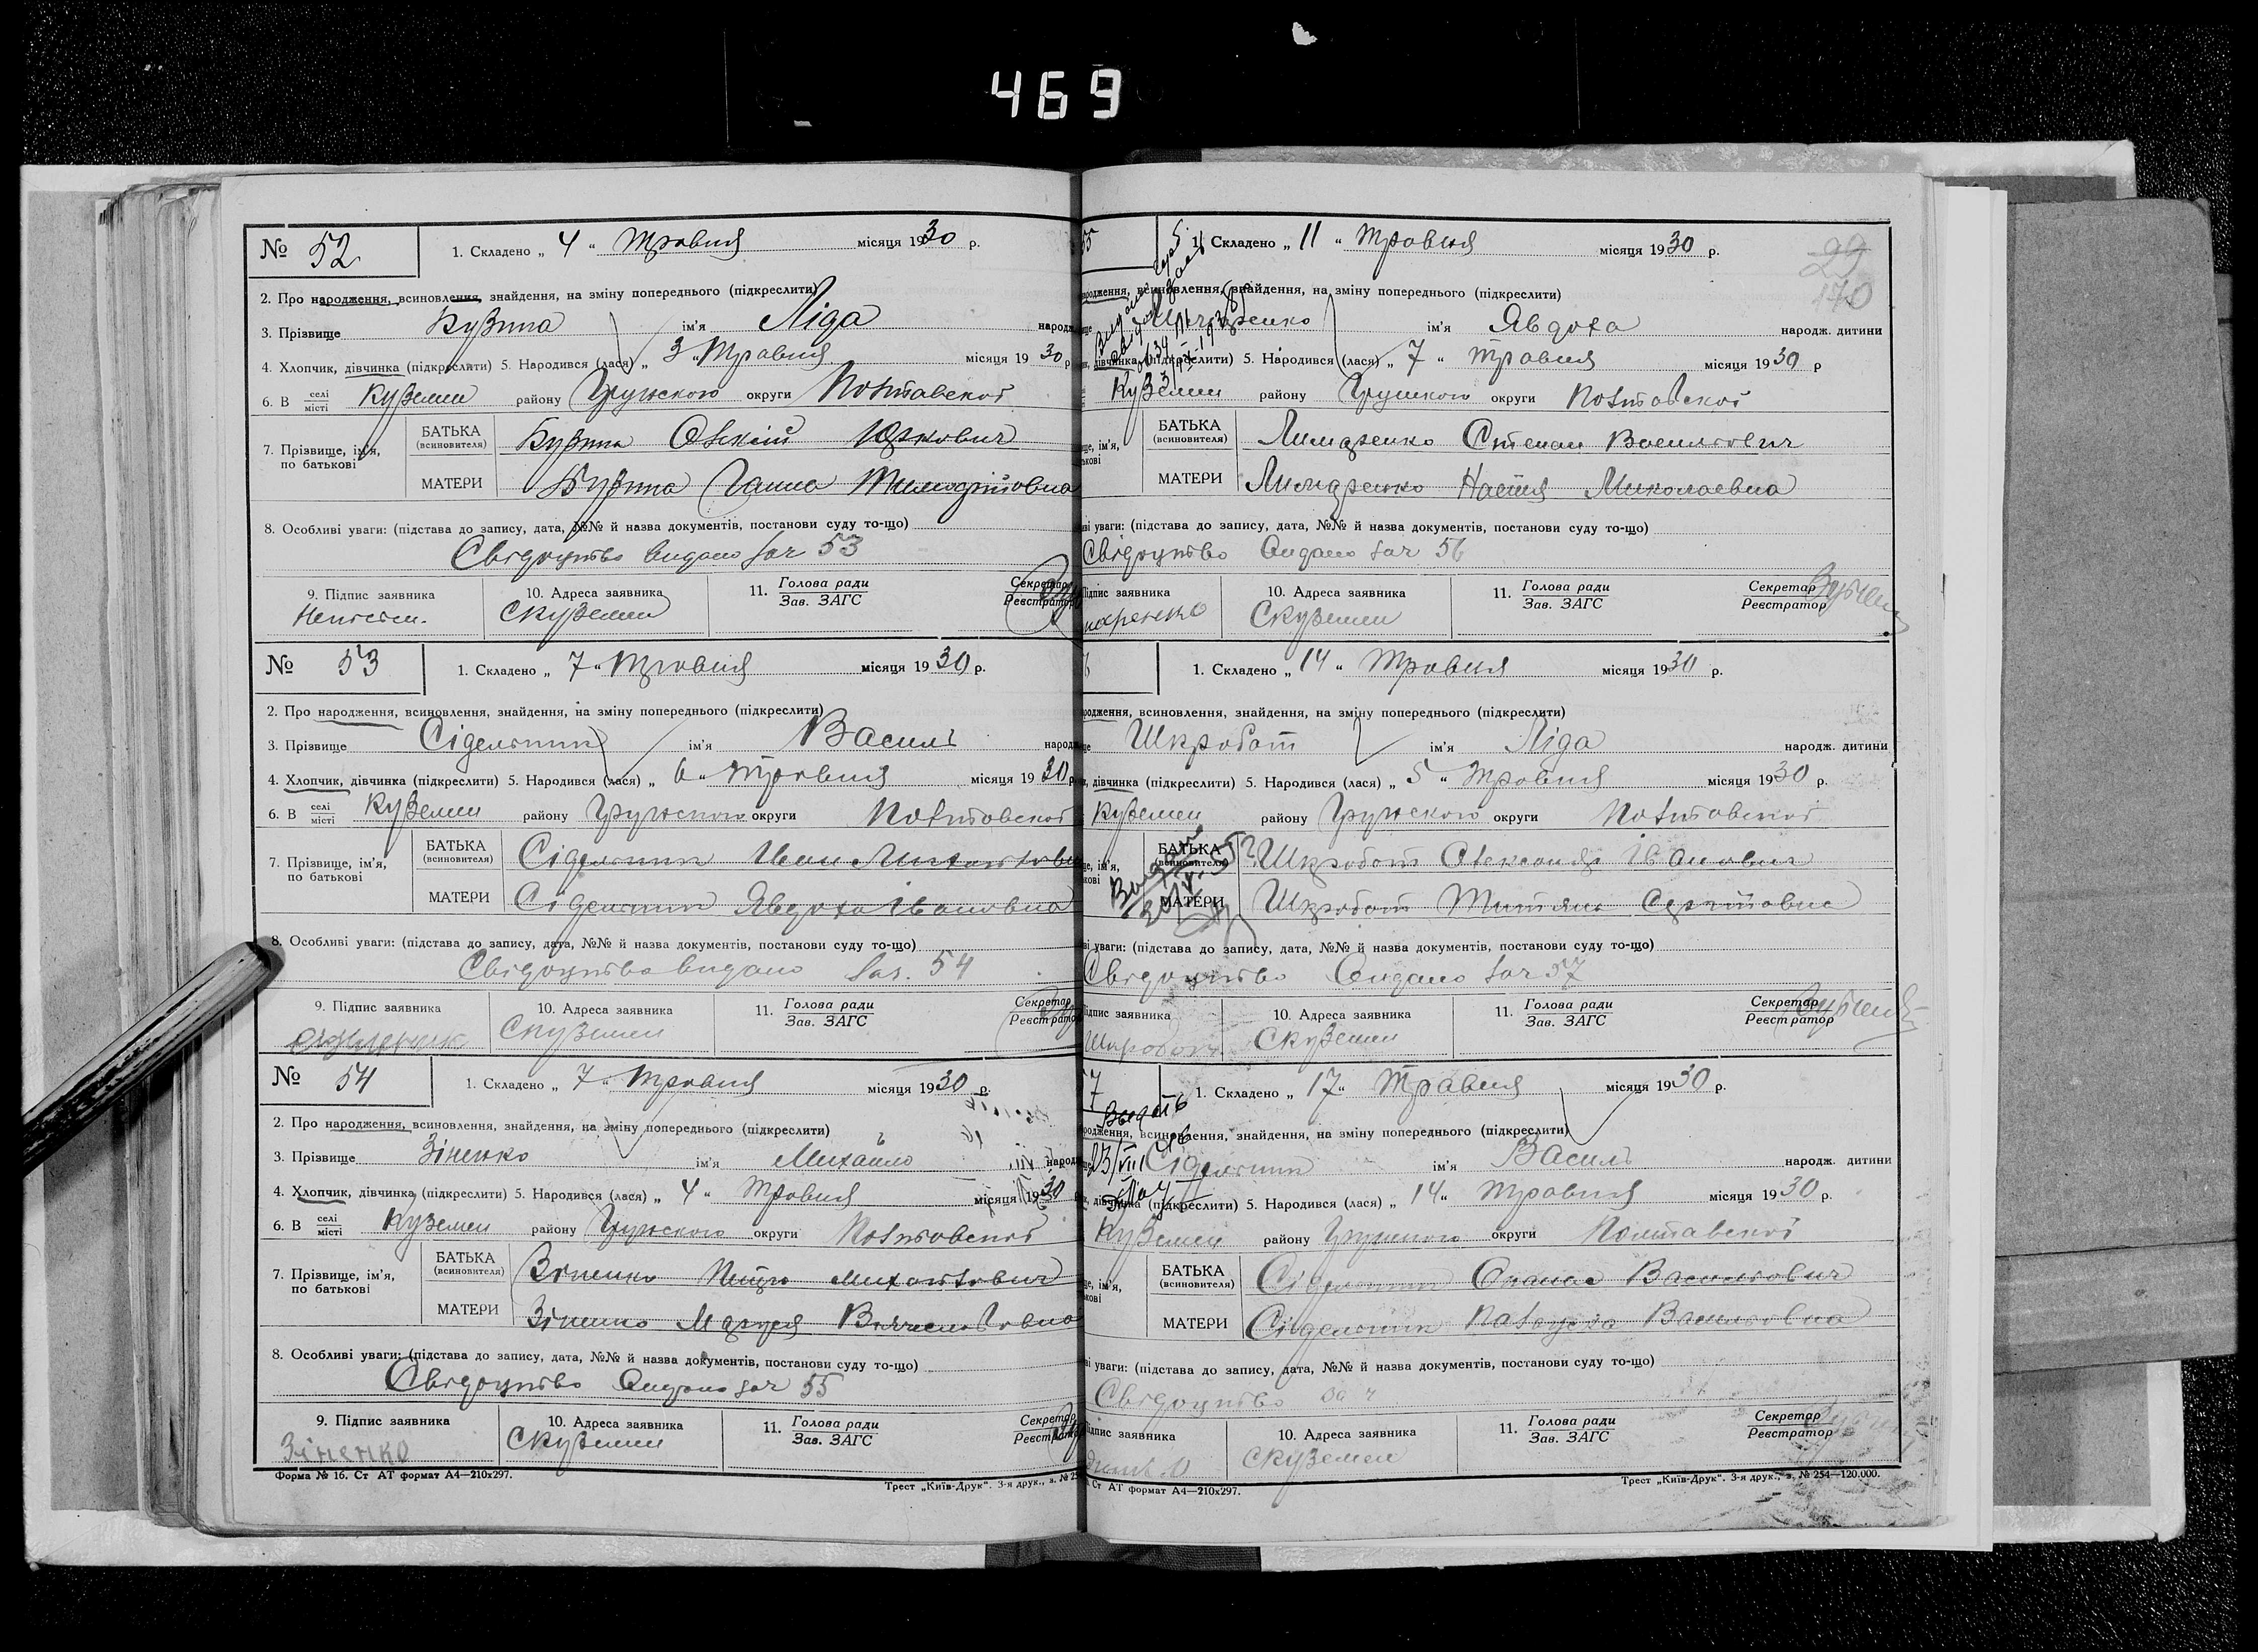 469
№ 52
1. Складено „ 4 “ Травня місяця 1930 р.
2. Про народження, всиновлення, знайдення, на зміну попереднього (підкреслити)
3. Прізвище Бузина ім'я Ліда народж
4. Хлопчик, дівчинка (підкреслити) 5. Народився (лася) „ 3 “ Травня місяця 1930 р
6. В селі місті Куземен району Грунського округи Полтавської
7. Прізвище, ім'я, по батькові
БАТЬКА (всиновителя) Бузина Олексій
МАТЕРИ Бузина Ганна
8. Особліві уваги: (підстава до запису, дата, №№ й назва документів, постанови суду то-що)
Свідоцтво видано за № 53
9. Підпис заявника 10. Адреса заявника 11. Голова ради Зав. ЗАГС Секретар Реєстратор
Неписьм. С Куземен
№ 53
1. Складено „ 7 “ Травня місяця 1930 р.
2. Про народження, всиновлення, знайдення, на зміну попереднього (підкреслити)
3. Прізвище Сідельник ім'я Василь народж
4. Хлопчик, дівчинка (підкреслити) 5. Народився (лася) „ 6 “ Травня місяця 1930 р
6. В селі місті Куземен району Грунського округи Полтавської
7. Прізвище, ім'я, по батькові
БАТЬКА (всиновителя) Сідельник Іван Михайлович
МАТЕРИ Сідельник Явдоха Івановна
8. Особливі уваги: (підстава до запису, дата, №№ й назва документів, постанови суду то-що)
Свідоцтво видано за №. 54
9. Підпис заявника 10. Адреса заявника 11. Голова ради Зав. ЗАГС Секретар Реєстратор
С Куземен
№ 54
1. Складено „ 7 “ Травня місяця 1930 р.
2. Про народження, всиновлення, знайдення, на зміну попереднього (підкреслити)
3. Прізвище Зіненко ім'я Михайло народж
4. Хлопчик, дівчинка (підкреслити) 5. Народився (лася) „ 4 “ Травня місяця 1930
6. В селі місті Куземен району Грунського округи Полтавської
7. Прізвище, ім'я, по батькові
БАТЬКА (всиновителя) Зіненко Петро Михайлович
МАТЕРИ Зіненко Маруся Вячеславовна
8. Особливі уваги: (підстава до запису, дата, №№ й назва документів, постанови суду то-що)
Свідоцтво видано за № 55
9. Підпис заявника 10. Адреса заявника 11. Голова ради Зав. ЗАГС Секретар Реєстратор
Зіненко С Куземен
Форма № 16. Ст АТ формат А4—210х297.
Трест „Київ-Друк“. 3-я друк., з. № 25
55
1. Складено „ 11 “ Травня місяця 1930 р.
29
170
родження, всиновлення, знайдення, на зміну попереднього (підкреслити)
ім'я Явдоха народж. дитини
дівчинка (підкреслити) 5. Народився (лася) „ 7 “ Травня місяця 1930 р
Куземен району Грунського округи Полтавської
БАТЬКА (всиновителя) Степан Васильович
МАТЕРИ Настя Миколаевна
ві уваги: (підстава до запису, дата, №№ й назва документів, постанови суду то-що)
Свідоцтво видано за № 56
Підпис заявника 10. Адреса заявника 11. Голова ради Зав. ЗАГС Секретар Реєстратор
С Куземен
1. Складено „ 14 “ Травня місяця 1930 р.
родження, всиновлення, знайдення, на зміну попереднього (підкреслити)
Шкробот ім'я Ліда народж. дитини
дівчинка (підкреслити) 5. Народився (лася) „ 5 “ Травня місяця 1930 р.
Куземен району Грунського округи Полтавської
БАТЬКА (всиновителя) Шкробот Олександр Іванович
МАТЕРИ Шкробот Титяна Сергіївна
ві уваги: (підстава до запису, дата, №№ й назва документів, постанови суду то-що)
Свідоцтво видано за № 57
Підпис заявника 10. Адреса заявника 11. Голова ради Зав. ЗАГС Секретар Реєстратор
Шкробот С Куземен
7
1. Складено „ 17 “ Травня місяця 1930 р.
родження, всиновлення, знайдення, на зміну попереднього (підкреслити)
23/VIII Сідельник ім'я Василь народж. дитини
дівчинка (підкреслити) 5. Народився (лася) „ 14 “ Травня місяця 1930 р.
Куземен району Грунського округи Полтавської
БАТЬКА (всиновителя) Сідельник Опанас Васильович
МАТЕРИ Сідельник Васильовна
ві уваги: (підстава до запису, дата, №№ й назва документів, постанови суду то-що)
Свідоцтво
Підпис заявника 10. Адреса заявника 11. Голова ради Зав. ЗАГС Секретар Реєстратор
С Куземен
Ст АТ формат А4—210х297.
Трест „Київ-Друк“. 3-я друк., з. № 254—120.000.